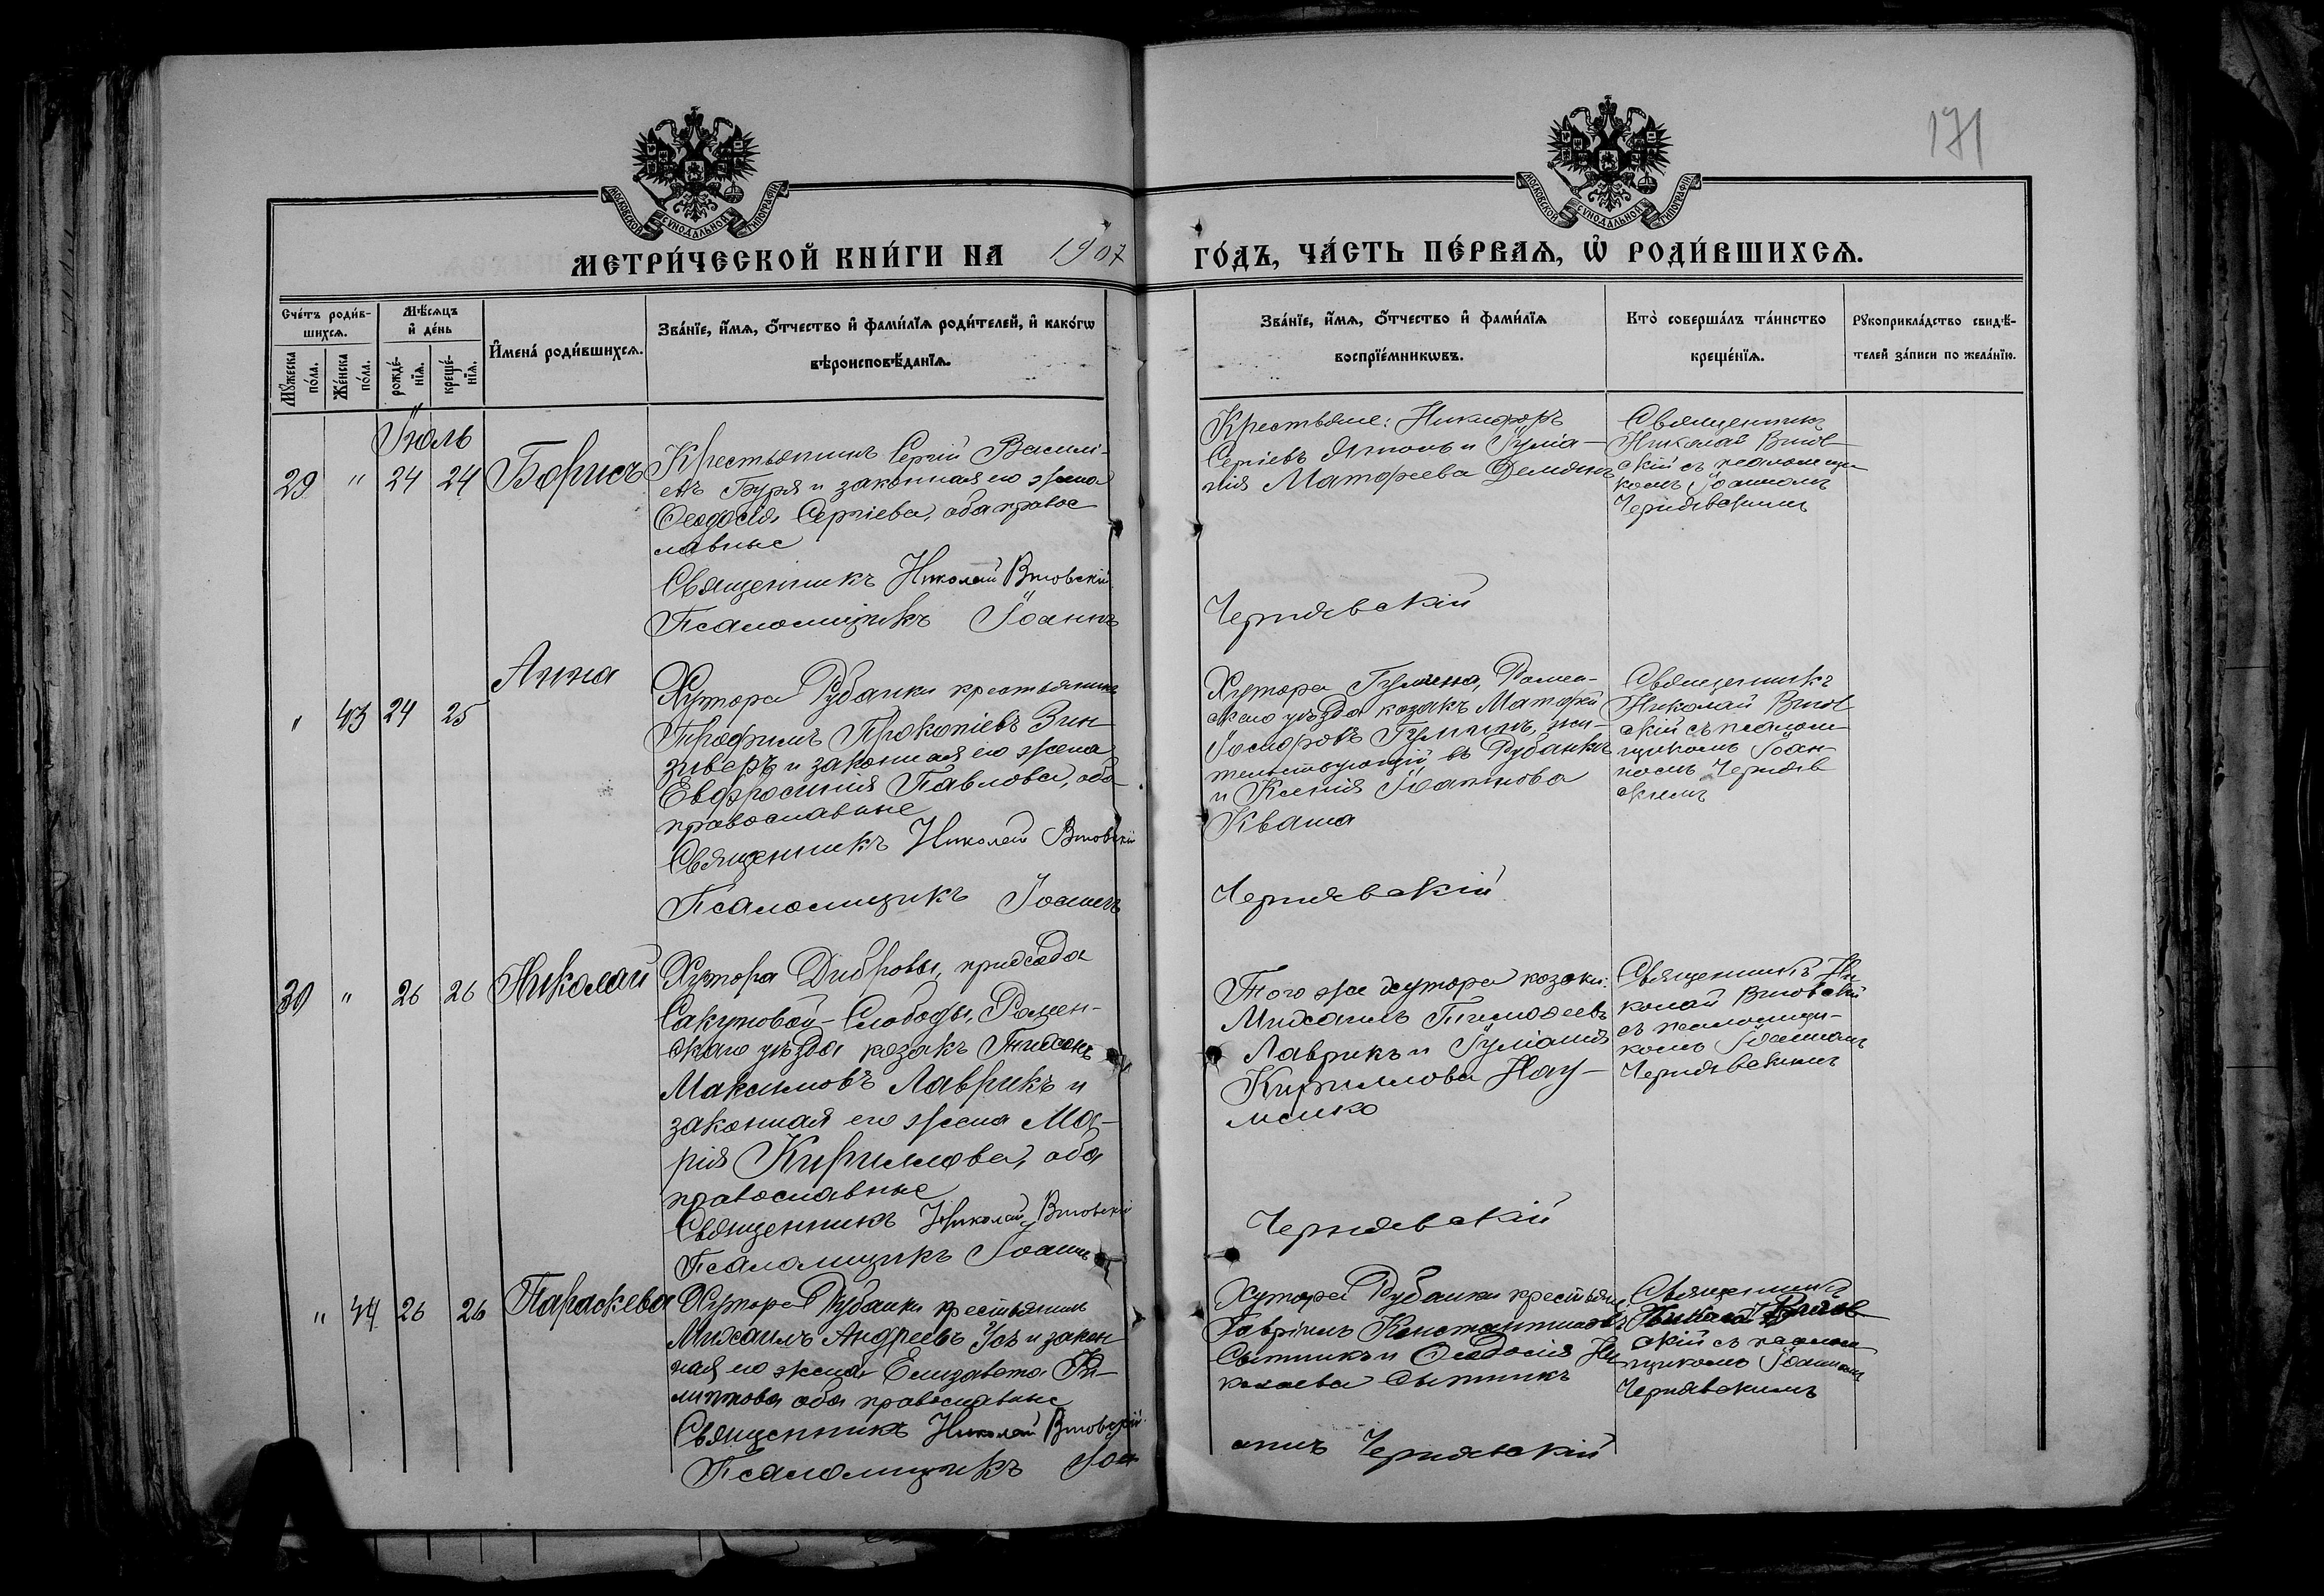 171
МОСКОВСКОЙ СѴНОДАЛЬНОЙ ТИПОГРАФІИ
МОСКОВСКОЙ СѴНОДАЛЬНОЙ ТИПОГРАФІИ
МЕТРИ́ЧЕСКОЙ КНИ́ГИ НА 1907 ГО́ДЪ, ЧА́СТЬ ПЕ́РВАѦ, Ѽ РОДИ́ВШИХСѦ.
Сче́тъ роди́в-
шихсѧ.
Мꙋжеска по́ла.
Же́нска по́ла.
Мѣ́сѧцъ и҆ де́нь
рожде́-нїѧ.
креще́-нїѧ.
И҆мена̀ роди́вшихсѧ.
Зва́нїе, и҆́мѧ, ѻ҆́тчество и҆ фами́лїѧ роди́телей, и҆ како́гѡ
вѣроисповѣ́данїѧ.
Зва́нїе, и҆́мѧ, ѻ҆́тчество и҆ фами́лїѧ
воспрїе́мникѡвъ.
Кто̀ соверша́лъ та́инство
креще́нїѧ.
Рꙋкоприкла́дство свидѣ́-
телей за́писи по жела́нїю.
Іюль
29 " 24 24 Борисъ
Крестьянинъ Сергій Василі-
евъ Буря и законная его жена
Ѳеодосія Сергіева, оба правос
лавные
Священникъ Николай
Псаломщикъ Іоаннъ
Крестьяне: Никифоръ
Сергіевъ и Гуліа-
нія Матфеева
Священникъ
Николай
скій съ псаломщи-
комъ Іоанномъ
Чернявскимъ
Чернявскій
" 43 24 25 Анна
Хутора Рубанки крестьянинъ
Трофимъ Прокопіевъ Зин
зиверъ и законная его жена
Евфросинія Павлова, оба
православные
Священникъ Николай
Псаломщикъ Іоаннъ
Хутора Гулина, Ромен-
скаго уѣзда козакъ Матфей
жи-
тельствующій въ Рубанкѣ
и Ксенія Іоаннова
Кваша
Священникъ
Николай
скій съ псалом-
щикомъ Іоан-
номъ Черняв
скимъ
Чернявскій
30 " 26 26 Николай
Хутора Дибровы, прихода
Сакуновой-Слободы, Ромен-
скаго уѣзда козакъ Тихонъ
Максимовъ Лаврикъ и
законная его жена Ма-
рія Кириллова, оба
православные
Священникъ Николай
Псаломщикъ Іоаннъ
Того же хутора козаки:
Михаилъ Тимоѳеевъ
Лаврикъ и Гуліанія
Кириллова Нау-
менко
Священникъ Ни-
колай
съ псаломщи-
комъ Іоанномъ
Чернявскимъ
Чернявскій
" 44 26 26 Параскева
Хутора Рубанки крестьянинъ
Михаилъ Андреевъ Усъ и закон
ная его жена Елизавета Фи-
липпова оба православные
Священникъ Николай
Псаломщикъ Іоа-
Хутора Рубанки крестьяне:
Гавріилъ Константиновъ
Сытникъ и Ѳеодосія Ни-
колаева Сытникъ
Священникъ
Николай
скій съ псалом-
щикомъ Іоанномъ
Чернявскимъ
ннъ Чернявскій